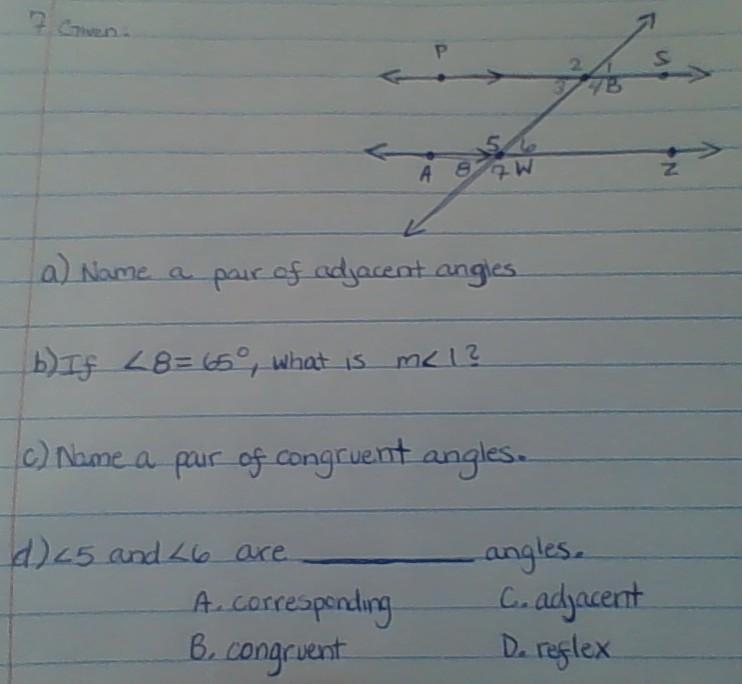 7 Given:
P
2 1 S
3 4 B
5 6
A 8 7 W Z
a) Name a pair of adjacent angles
b) If <8=65°, what is m<1?
c) Name a pair of congruent angles.
d) <5 and <6 are ________ angles.
A. corresponding C. adjacent
B. congruent D. reflex